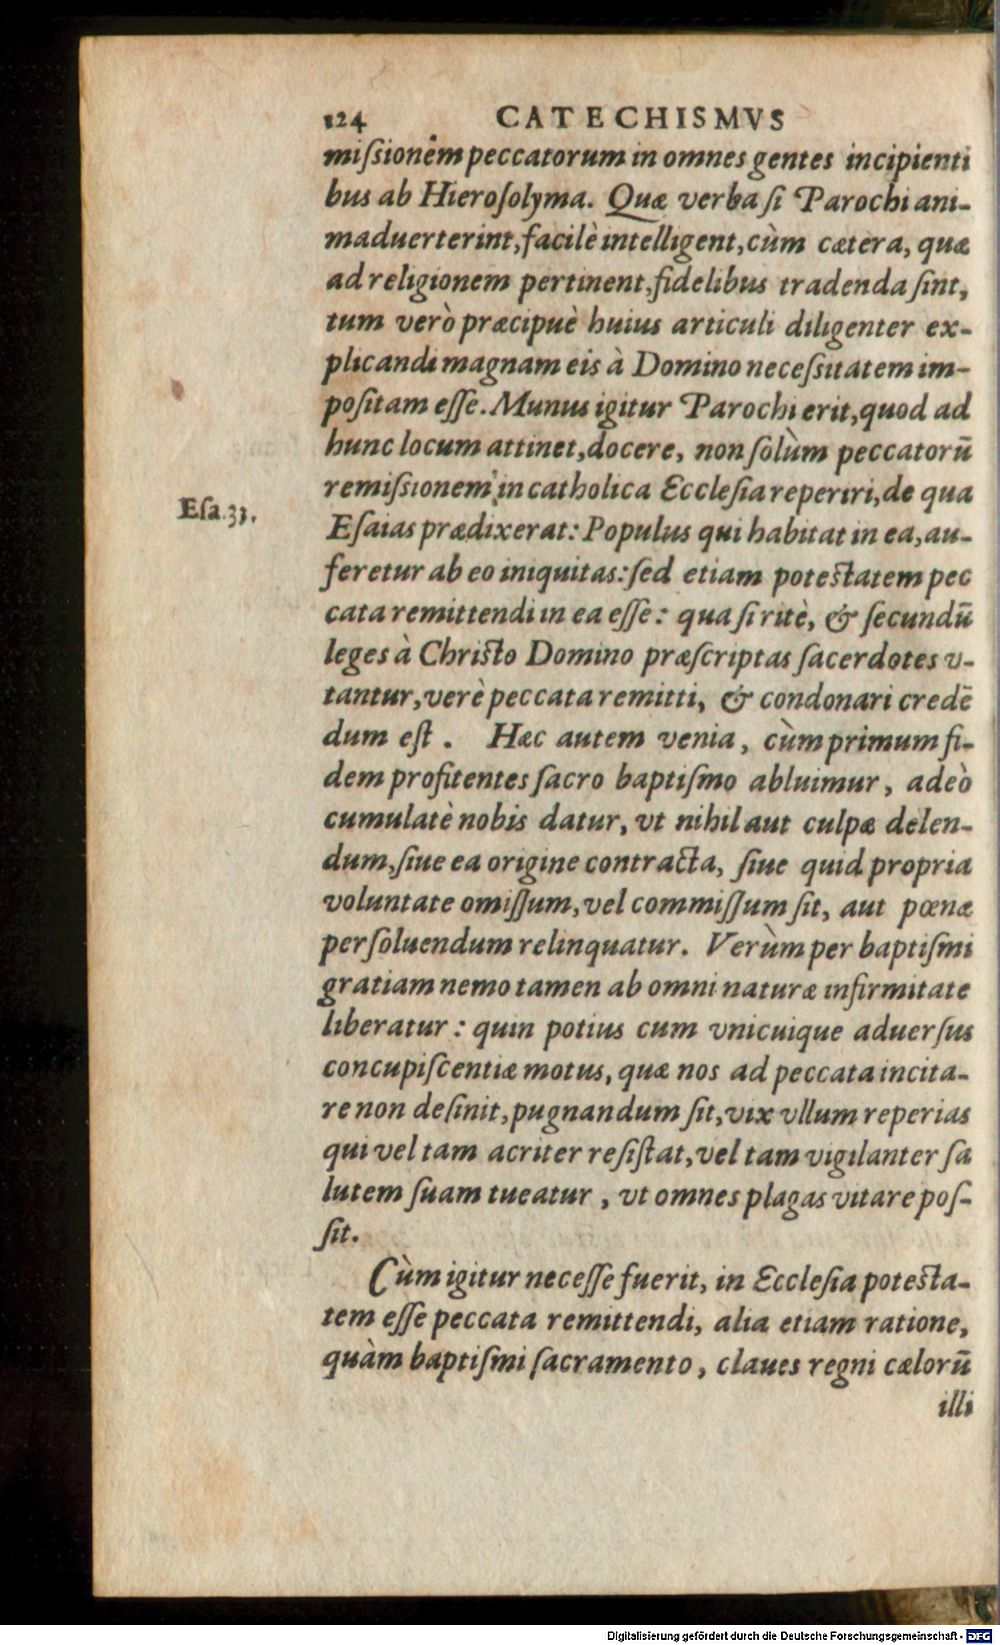 124 CATECHISMVS
miſsionem peccatorum in omnes gentes incipienti
bus ab Hieroſolyma. Quæ verba ſi Parochi ani-
maduerterint, facilè intelligent, cùm cætera, quæ
ad religionem pertinent, fidelibus tradenda ſint,
tum verò præcipuè huius articuli diligenter ex-
plicandi magnam eis à Domino neceſsitatem im-
poſitam eſſe. Munus igitur Parochi erit, quod ad
hunc locum attinet, docere, non ſolùm peccatorū
remiſsionem in catholica Eccleſia reperiri, de qua
Eſa. 33.
Eſaias prædixerat: Populus qui habitat in ea, au-
feretur ab eo iniquitas: ſed etiam poteſtatem pec
cata remittendi in ea eſſe: qua ſi ritè, & ſecundū
leges à Chriſto Domino præſcriptas ſacerdotes v-
tantur, verè peccata remitti, & condonari credē
dum eſt. Hæc autem venia, cùm primum fi-
dem profitentes ſacro baptiſmo abluimur, adeò
cumulatè nobis datur, vt nihil aut culpæ delen-
dum, ſiue ea origine contracta, ſiue quid propria
voluntate omiſſum, vel commiſſum ſit, aut pœnæ
perſoluendum relinquatur. Verùm per baptiſmi
gratiam nemo tamen ab omni naturæ infirmitate
liberatur: quin potius cum vnicuique aduerſus
concupiſcentiæ motus, quæ nos ad peccata incita-
re non deſinit, pugnandum ſit, vix vllum reperias
qui vel tam acriter reſiſtat, vel tam vigilanter ſa
lutem ſuam tueatur, vt omnes plagas vitare poſ-
ſit.
Cùm igitur neceſſe fuerit, in Eccleſia poteſta-
tem eſſe peccata remittendi, alia etiam ratione,
quàm baptiſmi ſacramento, claues regni cælorū
illi
Digitalisierung gefördert durch die Deutsche Forschungsgemeinschaft - DFG